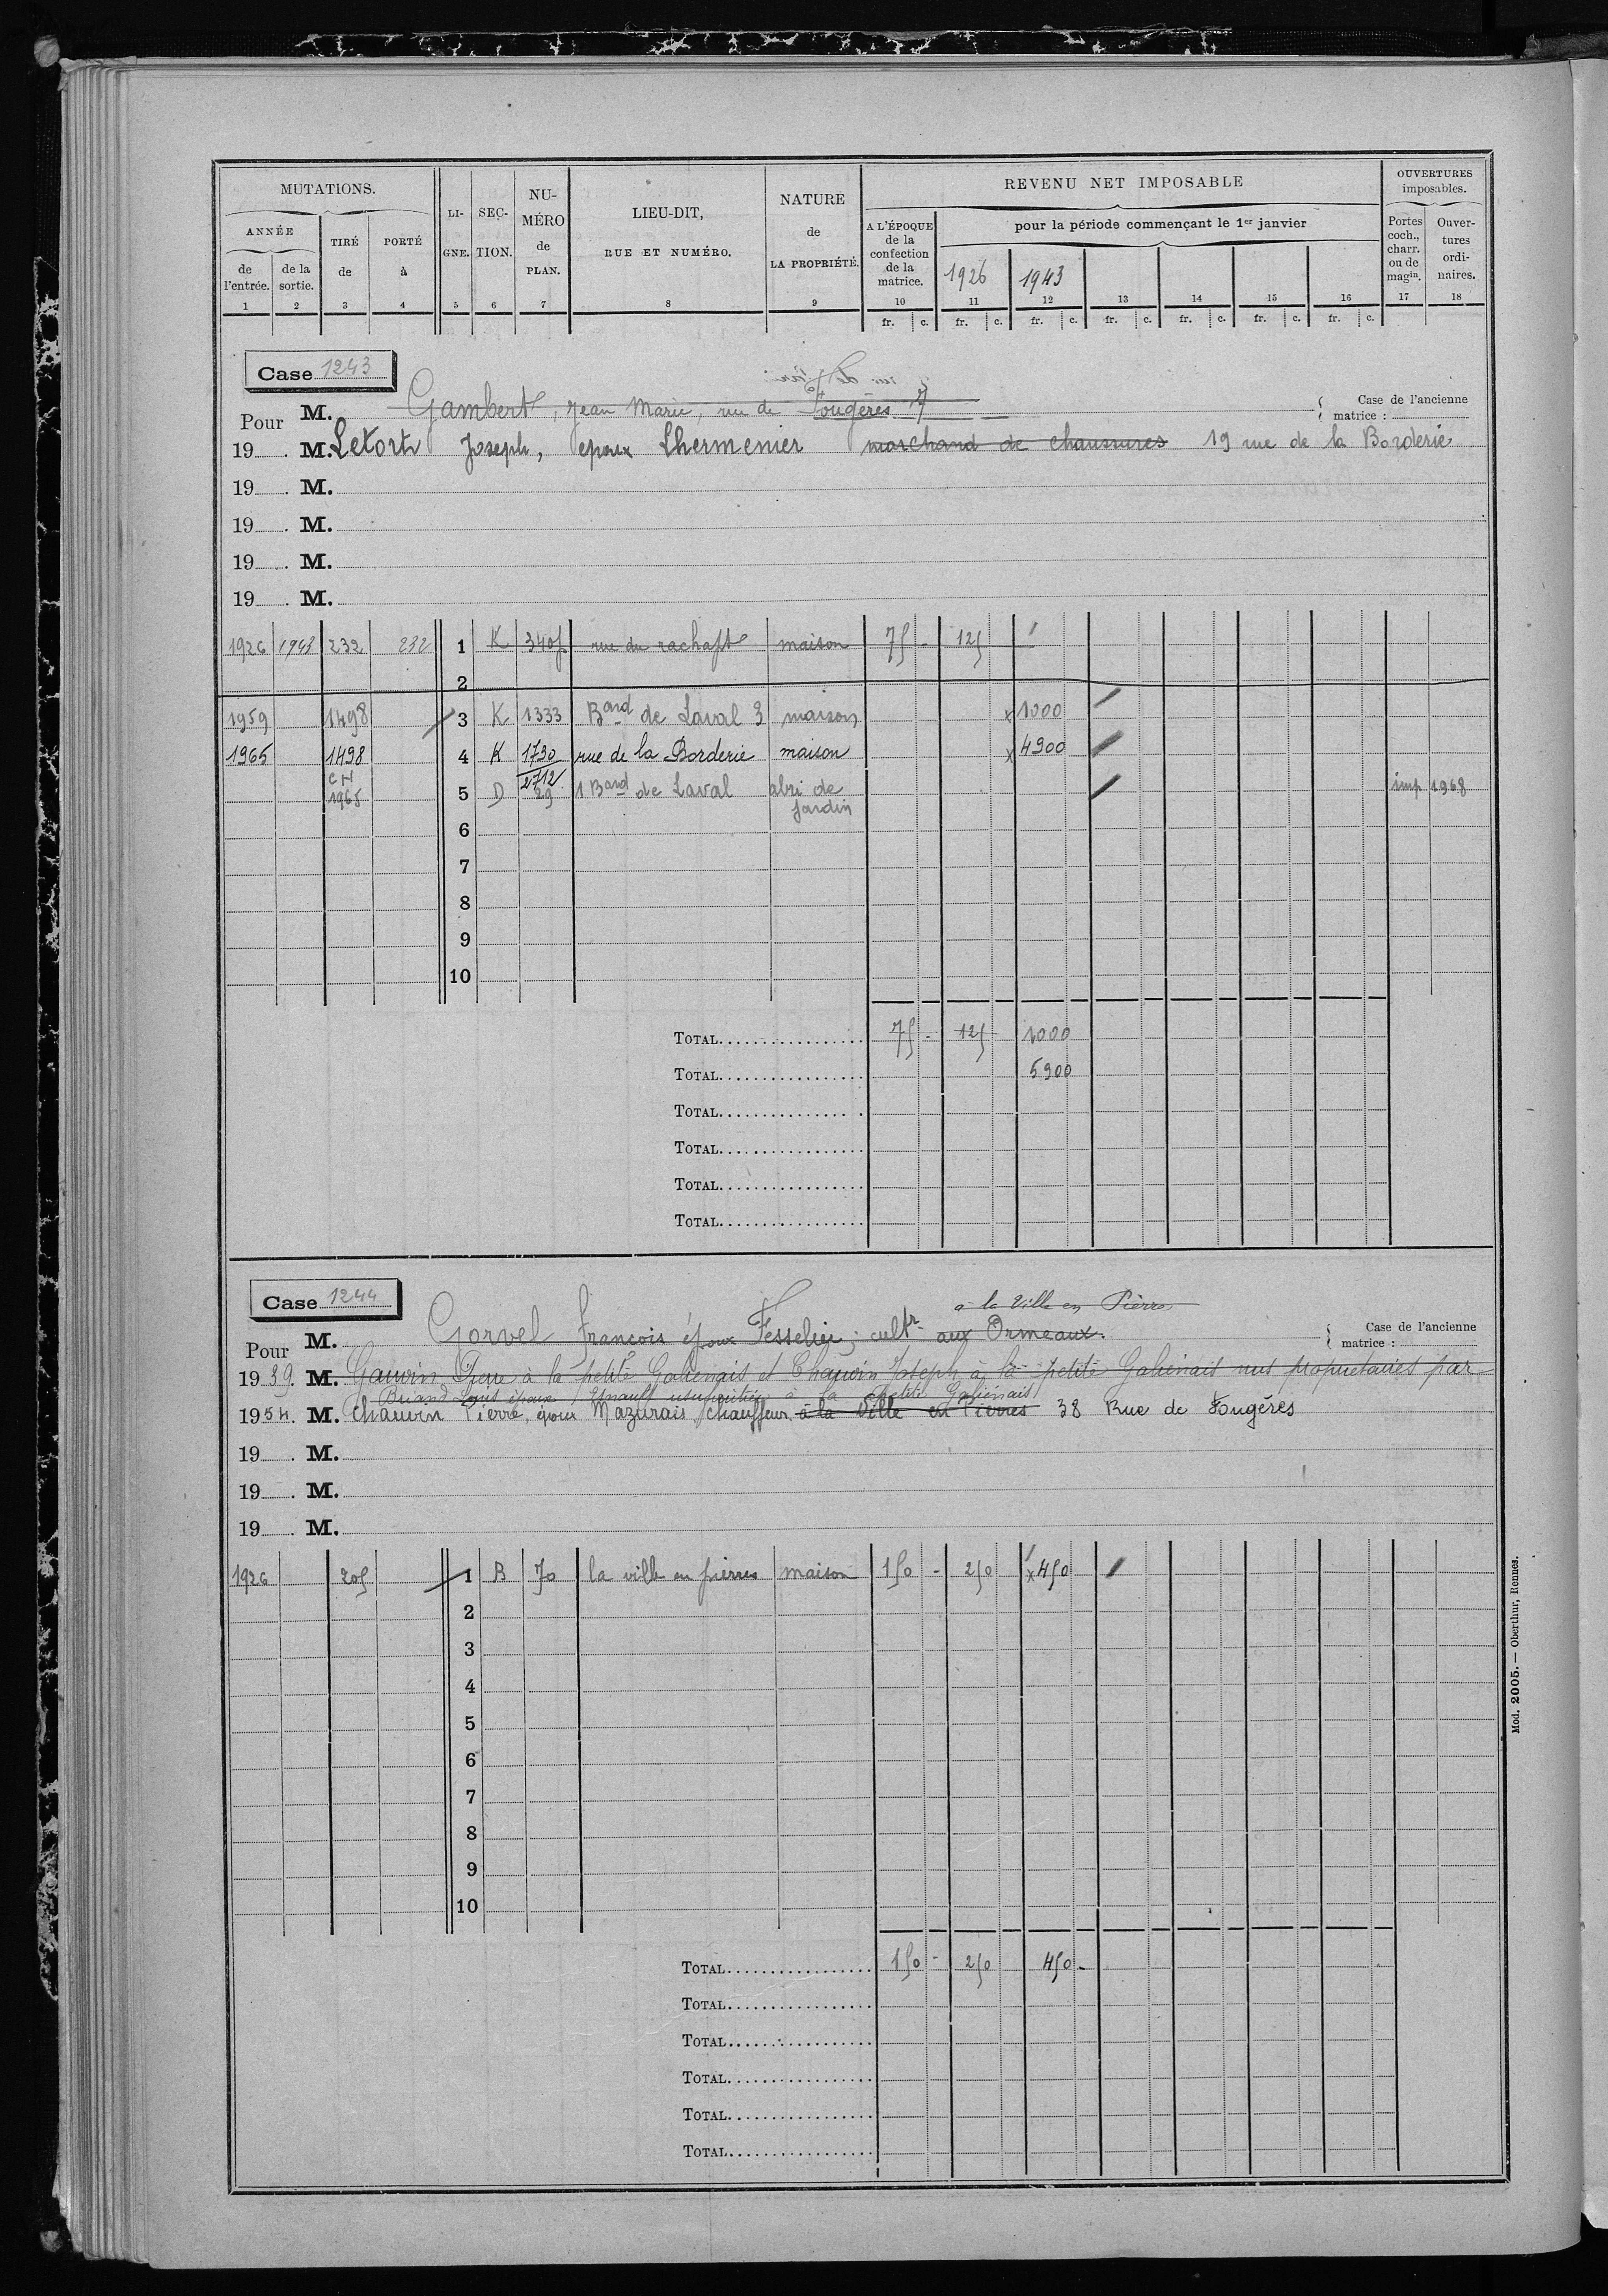 MUTATIONS. LI- SEC- NU- LIEU-DIT, NATURE REVENU NET IMPOSABLE OUVERTURES
GNE. TION. MÉRO RUE ET NUMÉRO. de imposables.
ANNÉE TIRÉ PORTÉ de LA PROPRIÉTÉ. A L'ÉPOQUE pour la période commençant le 1er janvier Portes Ouver-
de de la de à PLAN. de la coch., tures
l'entrée. sortie. confection charr. ordi-
de la 1926 1943 ou de naires.
matrice. magin.
1 2 3 4 5 6 7 8 9 10 11 12 13 14 15 16 17 18
fr. c. fr. c. fr. c. fr. c. fr. c. fr. c. fr. c.
Case 1243
Pour M. Gambert, Jean Marie, rue de Fougères 7 Case de l'ancienne
matrice :
19 M. Letort Joseph, epoux Lhermenier marchand de chaussures 19 rue de la Borderie
19 M.
19 M.
19 M.
19 M.
1926 1943 232 232 1 K 340f rue du rachapt maison 75 - 125
2
1959 1498 3 K 1333 Band de Laval 3 maison x 1000
1965 1498 4 K 1790 rue de la Borderie maison x 4900
CH 1965 5 D 2712 29 1 Band de Laval abri de jardin imp 1968
6
7
8
9
10
TOTAL 75 - 125 1000
TOTAL 5900
TOTAL
TOTAL
TOTAL
TOTAL
Case 1244
à la Ville en Pierre
Pour M. Gorvel François époux Fesselier, cultr aux Ormeaux. Case de l'ancienne
matrice :
1939. M. Gauvin Pierre à la petite Galienais et Chauvin Joseph à la petite Galienais nus propriétaires par
Briand Louis époux Esnault usufruitier à la petite Galiénais
1954. M. Chauvin Pierre, époux Mazurais chauffeur à la Ville en Pierres 38 Rue de Fougères
19 M.
19 M.
19 M.
1926 205 1 B 70 la ville en pierres maison 150 - 250 x 450
2
3
4
5
6
7
8
9
10
TOTAL 150 - 250 450 -
TOTAL
TOTAL
TOTAL
TOTAL
TOTAL
Mod. 2005. — Oberthur, Rennes.